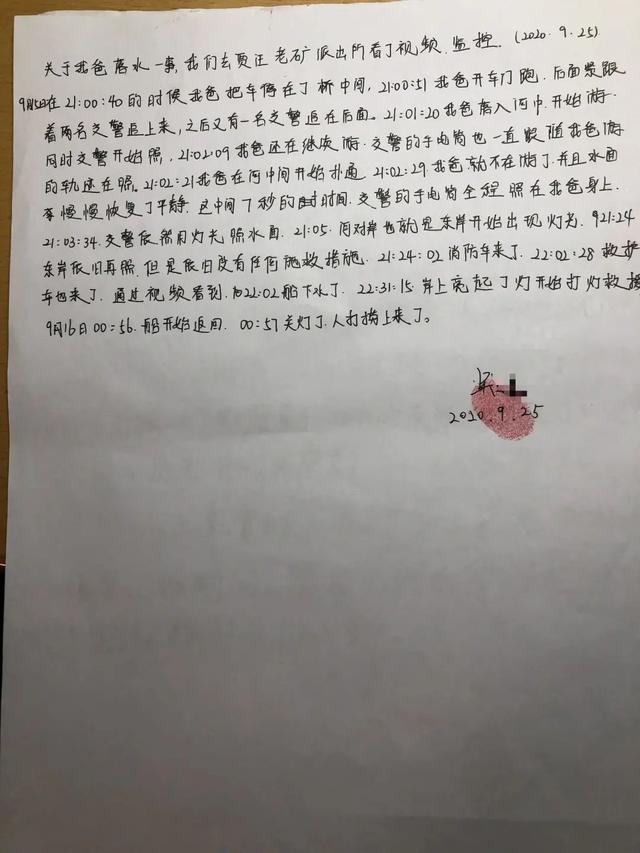 关于我爸落水一事，我们去贾汪老矿派出所看了视频监控．（2020．9．25）
9月15日在21:00:40的时候我爸把车停在了桥中间，21:00:51我爸开车门跑．后面紧跟
着两名交警追上来，之后又有一名交警追在后面．21:01:20我爸落入河中．开始游．
同时交警开始照，21:02:09我爸还在继续游．交警的手电筒也一直跟随我爸游
的轨迹在照．21:02:21我爸在河中间开始扑通．21:02:29．我爸就不在游了．并且水面
慢慢恢复了平静．这中间7秒的时间．交警的手电筒全程照在我爸身上．
21:03:34．交警依然用灯光照水面．21:05．河对岸也就是东岸开始出现灯光．21:24
东岸依旧再照．但是依旧没有任何施救措施．21:24:02消防车来了．22:02:28救护
车也来了．通过视频看到．22:02船下水了．22:31:15．岸上亮起了灯开始打灯救援
9月16日00:56．船开始返回．00:57关灯了．人打捞上来了。
2020．9．25